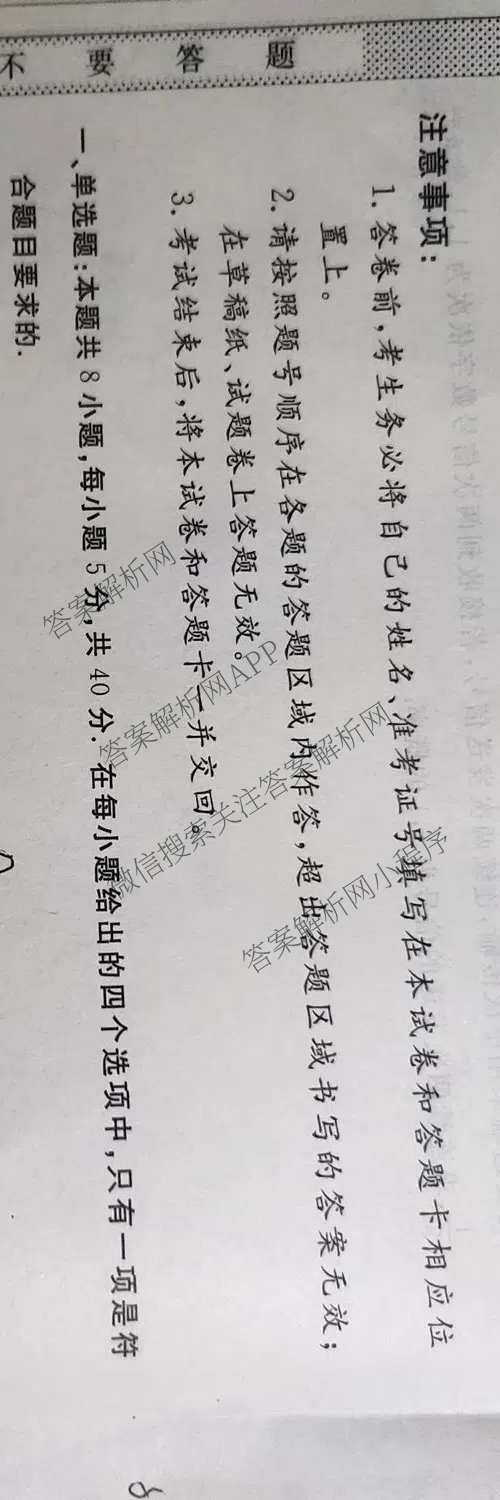 不要答题
注意事项：
1. 答卷前，考生务必将自己的姓名、准考证号填写在本试卷和答题卡相应位
置上。
2. 请按照题号顺序在各题的答题区域内作答，超出答题区域书写的答案无效；
在草稿纸、试题卷上答题无效。
3. 考试结束后，将本试卷和答题卡一并交回。
一、单选题：本题共 8 小题，每小题 5 分，共 40 分. 在每小题给出的四个选项中，只有一项是符
合题目要求的.
答案解析网
答案解析网APP
微信搜索关注答案解析网
答案解析网小程序